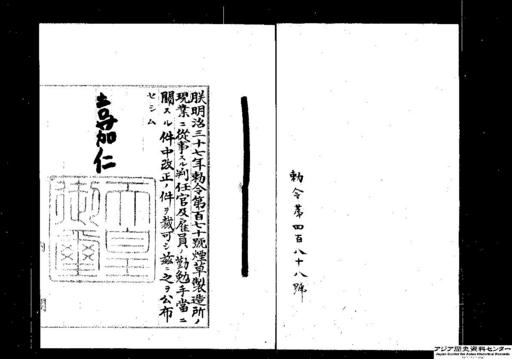 勅令第四百八十八號
朕明治三十七年勅令第百七十號煙草製造所ノ
現業ニ從事スル判任官及雇員ノ勤勉手當ニ
關スル件中改正ノ件ヲ裁可シ茲ニ之ヲ公布
セシム
嘉仁
天皇
御璽
アジア歴史資料センター
Japan Center for Asian Historical Records